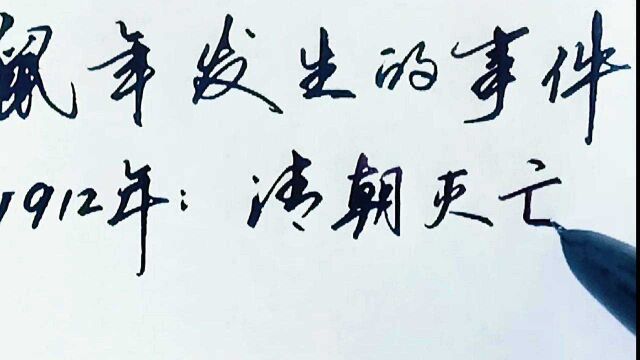 鼠年发生的事件
1912年：清朝灭亡